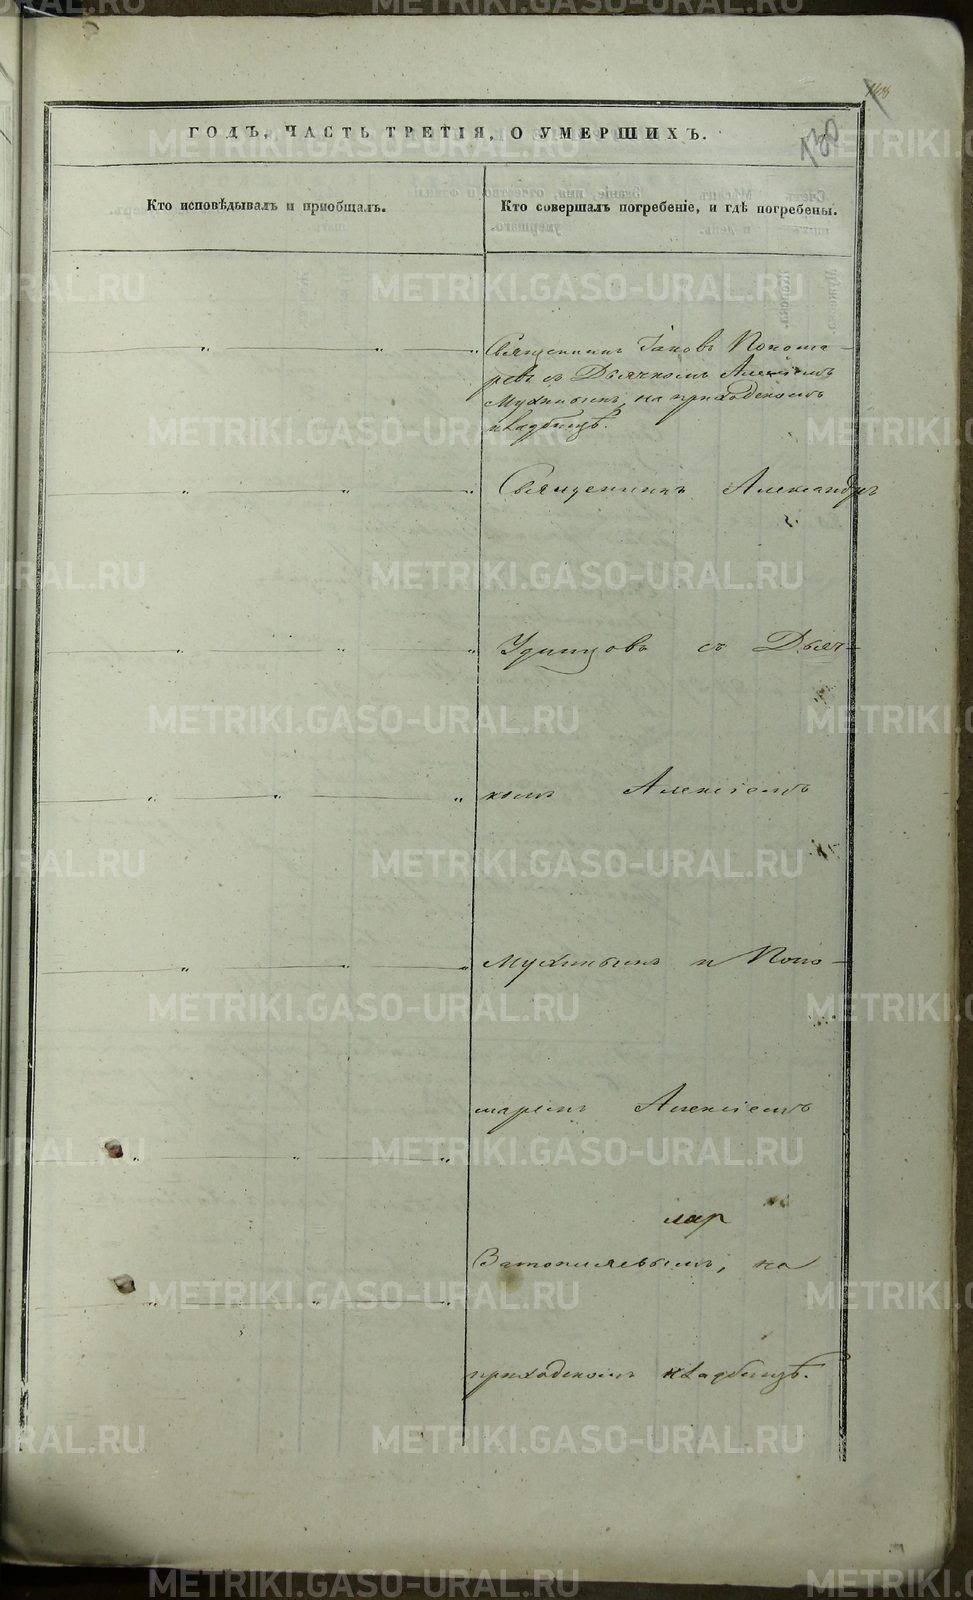 METRIKI.GASO-URAL.RU
130
ГОДЪ, ЧАСТЬ ТРЕТІЯ, О УМЕРШИХЪ.
Кто исповѣдывалъ и пріобщалъ.
Кто совершалъ погребеніе, и гдѣ погребены.
Священникъ Іаковъ Понома-
ревъ съ Дьячкомъ Алексіемъ
Мухинымъ, на приходскомъ
кладбищѣ.
Священникъ Александръ
Удинцовъ съ Дьяч-
комъ Алексіемъ
Мухинымъ и Поно-
маремъ Алексіемъ
на
приходскомъ кладбищѣ.